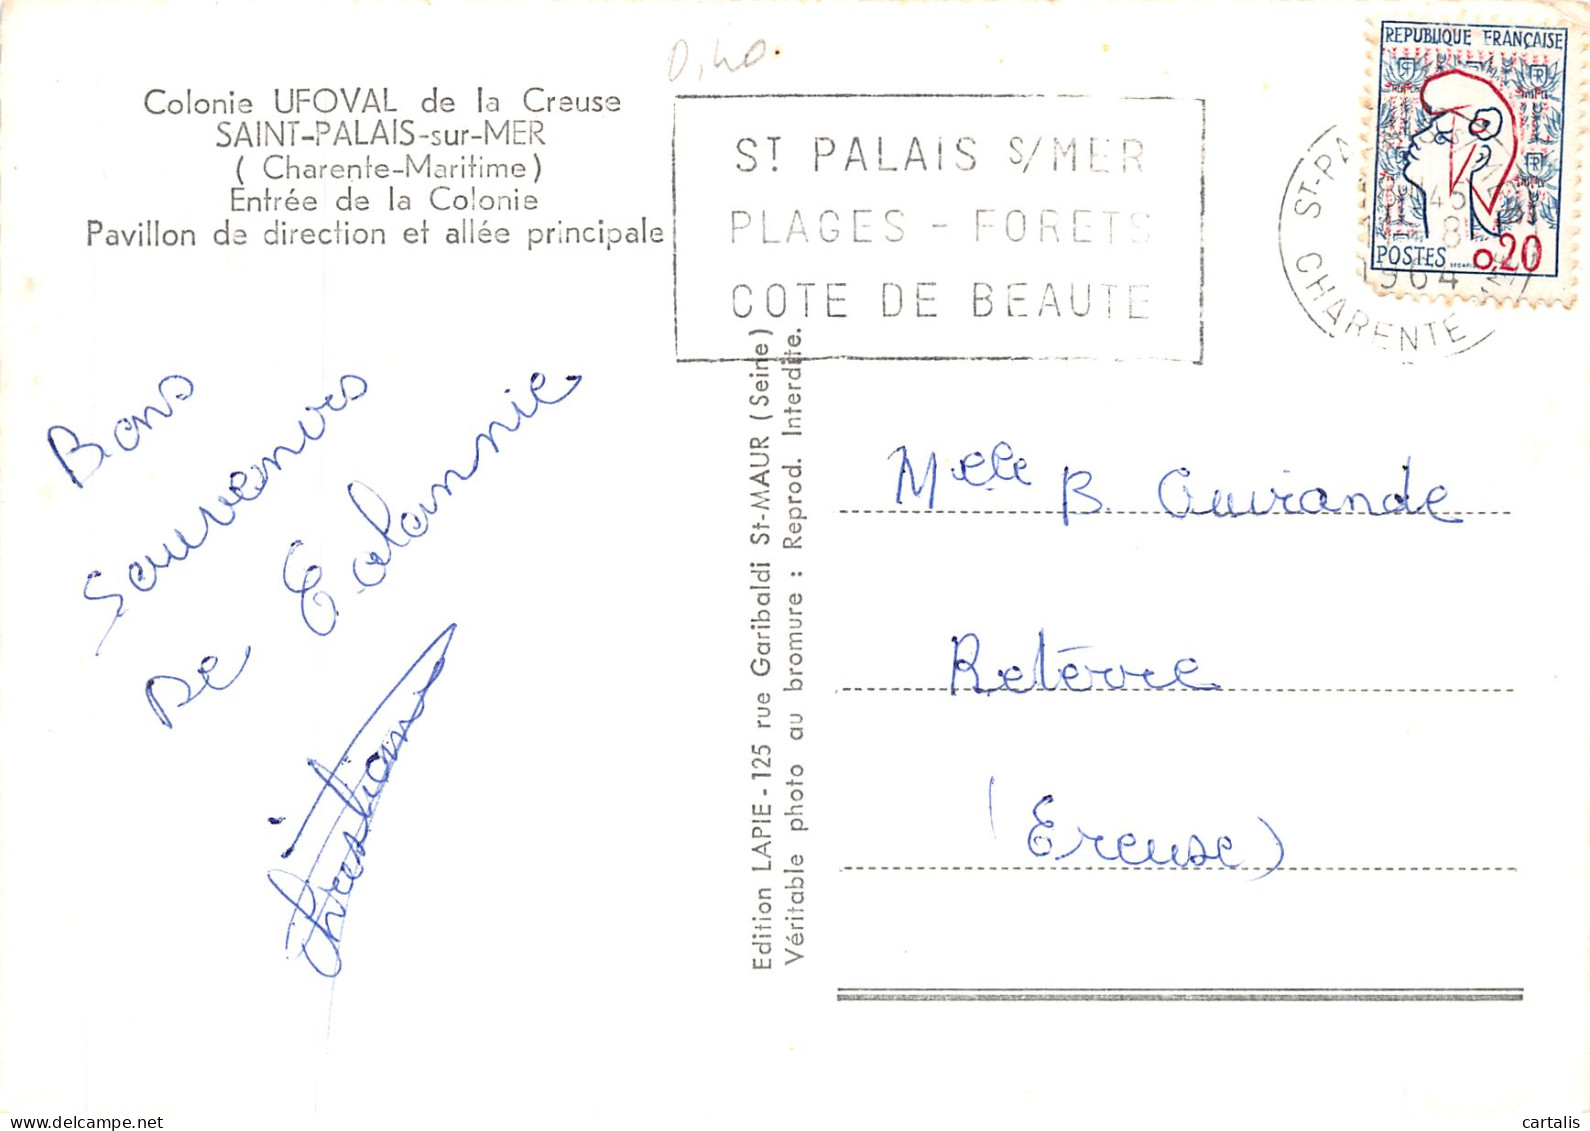 Colonie UFOVAL de la Creuse
SAINT-PALAIS-sur-MER
( Charente-Maritime )
Entrée de la Colonie
Pavillon de direction et allée principale
0,40
ST PALAIS S/MER
PLAGES - FORETS
COTE DE BEAUTE
REPUBLIQUE FRANÇAISE
POSTES
0,20
ST-PA
45
8
1964
CHARENTE
Bons
souvenirs
De Colonnie
Christiane
Edition LAPIE - 125 rue Garibaldi St-MAUR (Seine)
Véritable photo au bromure : Reprod. Interdite.
Melle B.
Reterre
(Creuse)
cartalis